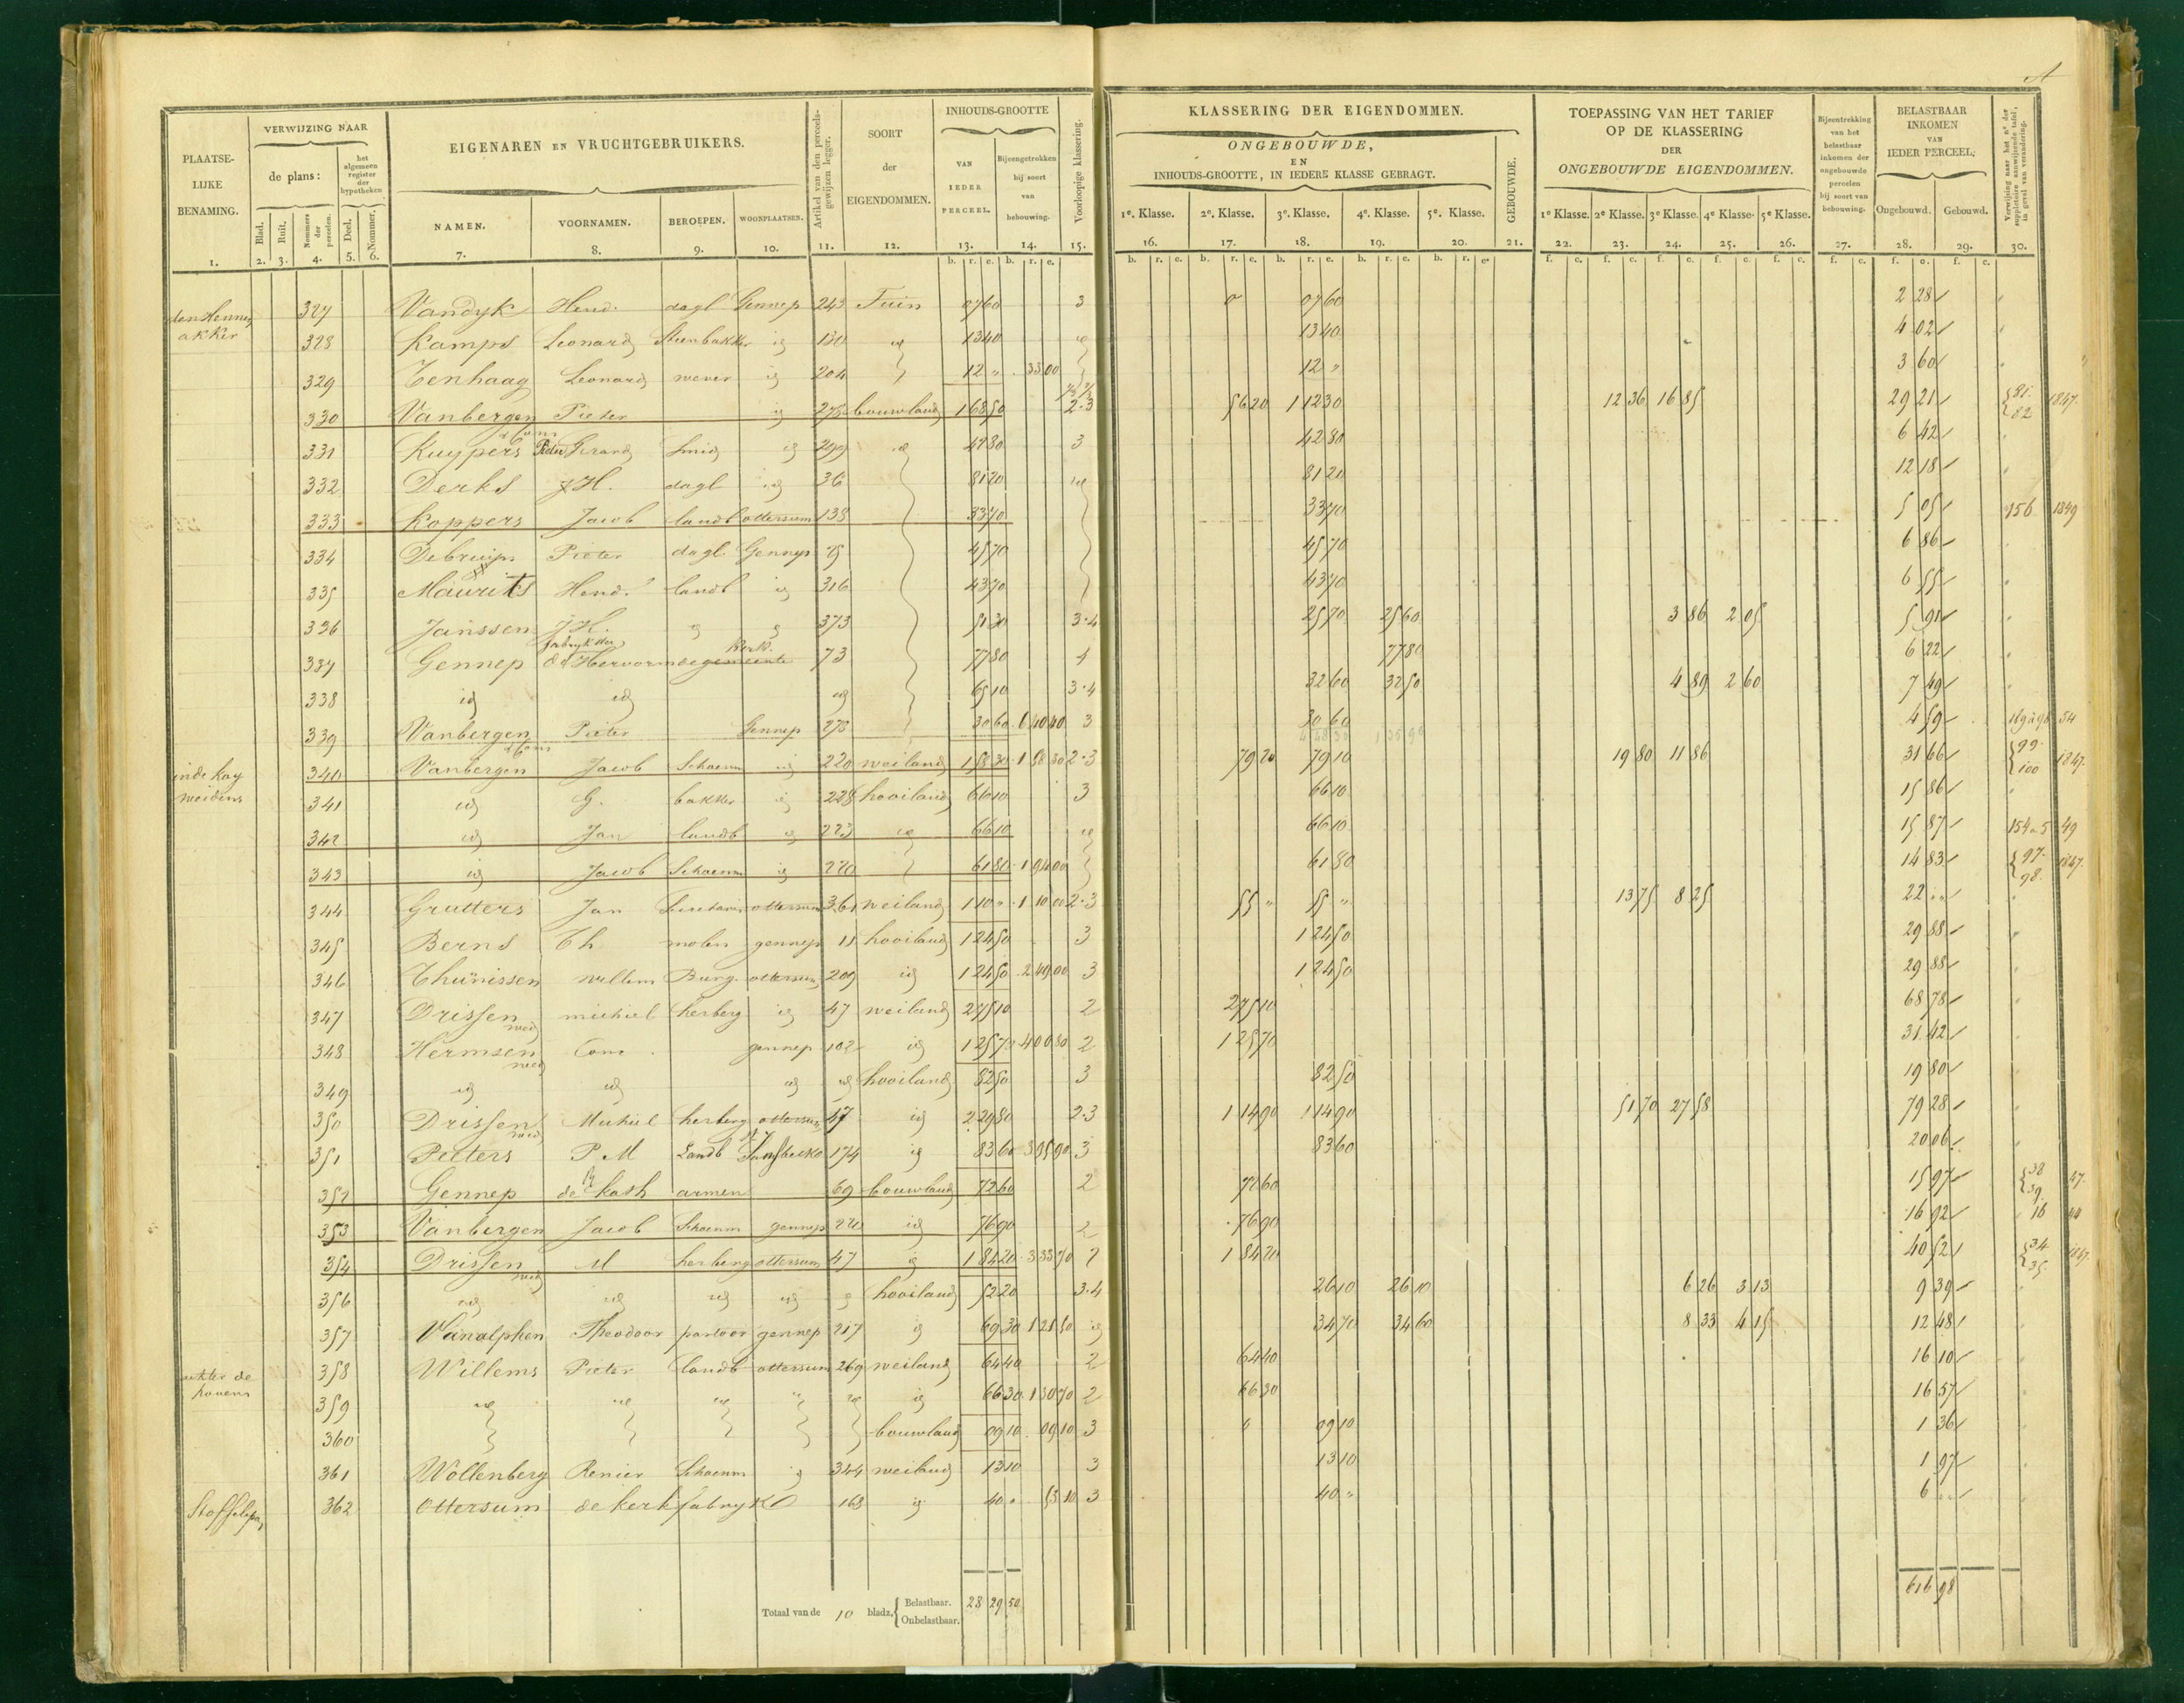 A
PLAATSE-
LIJKE
BENAMING.
VERWIJZING NAAR
de plans:
het algemeen register der hypotheken
Blad. Ruit. Nommers der perceelen. Deel. Nommer.
EIGENAREN EN VRUCHTGEBRUIKERS.
NAMEN. VOORNAMEN. BEROEPEN. WOONPLAATSEN.
Artikel van den perceels-gewijzen legger.
SOORT
der
EIGENDOMMEN.
INHOUDS-GROOTTE
VAN IEDER PERCEEL.
Bijeengetrokken bij soort van bebouwing.
Voorloopige klassering.
KLASSERING DER EIGENDOMMEN.
ONGEBOUWDE,
EN
INHOUDS-GROOTTE, IN IEDERE KLASSE GEBRAGT.
1e. Klasse. 2e. Klasse. 3e. Klasse. 4e. Klasse. 5e. Klasse.
GEBOUWDE.
TOEPASSING VAN HET TARIEF
OP DE KLASSERING
DER
ONGEBOUWDE EIGENDOMMEN.
1e Klasse. 2e Klasse. 3e Klasse. 4e Klasse. 5e Klasse.
Bijeentrekking van het belastbaar inkomen der ongebouwde perceelen bij soort van bebouwing.
BELASTBAAR
INKOMEN
VAN
IEDER PERCEEL.
Ongebouwd. Gebouwd.
Verwijzing naar het no. der suppletoire aanwijzende tafel, in geval van verandering.
1. 2. 3. 4. 5. 6. 7. 8. 9. 10. 11. 12. 13. 14. 15. 16. 17. 18. 19. 20. 21. 22. 23. 24. 25. 26. 27. 28. 29. 30.
327 Vandyk Hend. dagl Gennep 243 Tuin 07 60 3 07 60 2 28
akker 328 Kamps Leonard Steenbakker id 130 id 13 40 id 13 40 4 02
329 Tenhaag Leonard wever id 204 12 " 33 00 12 " 3 60
330 Vanbergen Pieter id 278 bouwland 1 68 50 2.3 56 20 1 12 30 12 36 16 85 29 21 81. 82 1847.
331 Kuypers Pieter Gerard smid id id 42 80 3 42 80 6 42
332 Derks J H. dagl id 36 81 20 id 81 20 12 18
333 Koppers Jacob landb ottersum 138 33 70 33 70 5 05 156 1849
334 Debruijn Pieter dagl Gennep 45 70 45 70 6 86
335 Maurits Hend. landb id 316 43 70 43 70 6 55
336 Janssen J H. id id 373 51 30 3.4 25 70 25 60 3 86 2 05 5 91
337 Gennep fabryk der Hervormde gemeente kerk. 73 77 80 4 77 80 6 22
338 id id id 65 10 3.4 32 60 32 50 4 89 2 60 7 49
339 Vanbergen Pieter Gennep 278 30 60 6 40 40 3 30 60 4 59 54
weidens 340 Vanbergen Jacob Schoenm id 220 weiland 1 58 30 1 58 30 2.3 79 20 79 10 19 80 11 86 31 66 99. 100 1847.
341 id G. bakker id 228 hooiland 66 10 3 66 10 15 86
342 id Jan landb id 223 id 66 10 id 66 10 15 87 154 a 5 49
343 id Jacob Schoenm id 220 61 80 1 94 00 61 80 14 83 97. 98. 1847.
344 Grutters Jan Secretaris ottersum 361 weiland 1 10 " 1 10 00 2.3 55 " 55 " 13 75 8 25 22 "
345 Berns Th molen gennep 11 hooiland 1 24 50 3 1 24 50 29 88
346 Thünissen willem Burg. ottersum 209 id 1 24 50 2 49 00 3 1 24 50 29 88
347 Drissen wed michiel herberg id 47 weiland 2 75 10 2 2 75 10 68 78
348 Hermsen wed gennep 102 id 1 25 70 4 00 80 2 1 25 70 31 42
349 id id id id hooiland 82 50 3 82 50 19 80
350 Drissen wed Michiel herberg ottersum 47 id 2 29 80 2.3 1 14 90 1 14 90 51 70 27 58 79 28
351 Peeters P M Landb 174 id 83 60 3 95 90 3 83 60 20 06
352 Gennep de kosh armen 69 bouwland 72 60 2 72 60 15 97 38 39 47.
353 Vanbergen Jacob Schoenm gennep 220 id 76 90 2 76 90 16 92 16 44
354 Drissen wed M herberg ottersum 47 id 1 84 20 3 33 70 2 1 84 20 40 52 34 35 1847.
356 id id id id id hooiland 52 20 3.4 26 10 26 10 6 26 3 13 9 39
357 Vanalphen Theodoor pastoor gennep 217 id 69 30 1 21 50 id 34 70 34 60 8 33 4 15 12 48
achter de hovens 358 Willems Pieter landb ottersum 269 weiland 64 40 2 64 40 16 10
359 id id id " id id 66 30 1 30 70 2 66 30 16 57
360 bouwland 09 10 09 10 3 09 10 1 36
361 Wollenberg Renier Schoenm id 344 weiland 13 10 3 13 10 1 97
362 ottersum de kerkfabryk 163 id 40 " 53 10 3 40 " 6 "
Totaal van de 10 bladz. Belastbaar. Onbelastbaar. 28 29 50
616 98